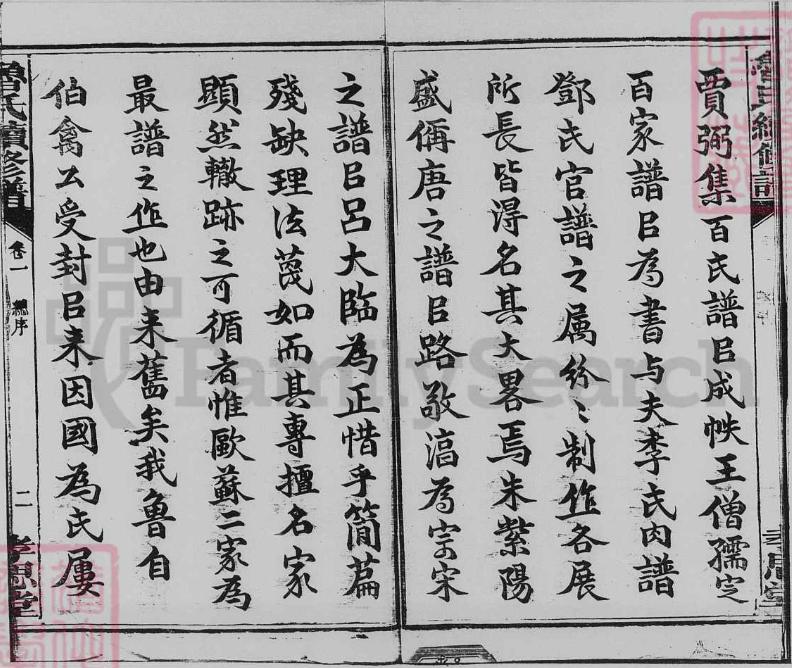 賈弼集百氏譜㠯成帙王僧孺定
百家譜㠯為書与夫李氏肉譜
鄧氏官譜之屬紛〻制作各展
所長皆得名其大畧焉朱紫陽
盛偁唐之譜㠯路敬滈為宗宋
之譜㠯呂大臨為正惜乎簡篇
殘缺理法蔑如而其專擅名家
顯然轍跡之可循者惟歐蘇二家為
最譜之作也由来舊矣我魯自
伯禽公受封㠯来因國為氏屢
魯氏續修譜
卷一
總序
二
孝思堂
FamilySearch